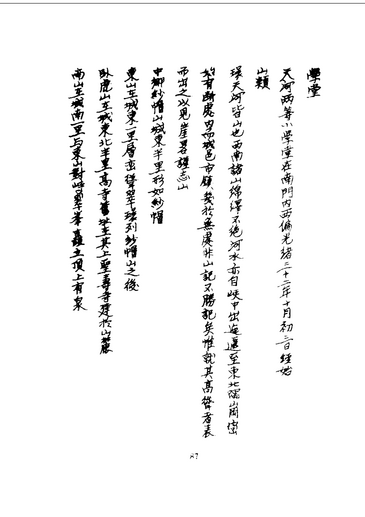 學堂
天河兩等小學堂在南門內西偏光緒三十二年十月初三日經始
山類
環天河皆山也西南諸山綿渾不絕河水亦自峽中出逶邐至東北隅山崗密
始有斷處內而城邑市鎮幾於無處非山記不勝記矣惟就其高聳者表
而出之以見崖畧謹志山
中鄉紗帽山城東半里形如紗帽
東山在城東一里層巒聳翠環列紗帽山之後
臥虎山在城東北半里高寺舊址在其上聖壽寺建於山麓
高山在城南一里与東山對峙翠峯矗立頂上有泉
87